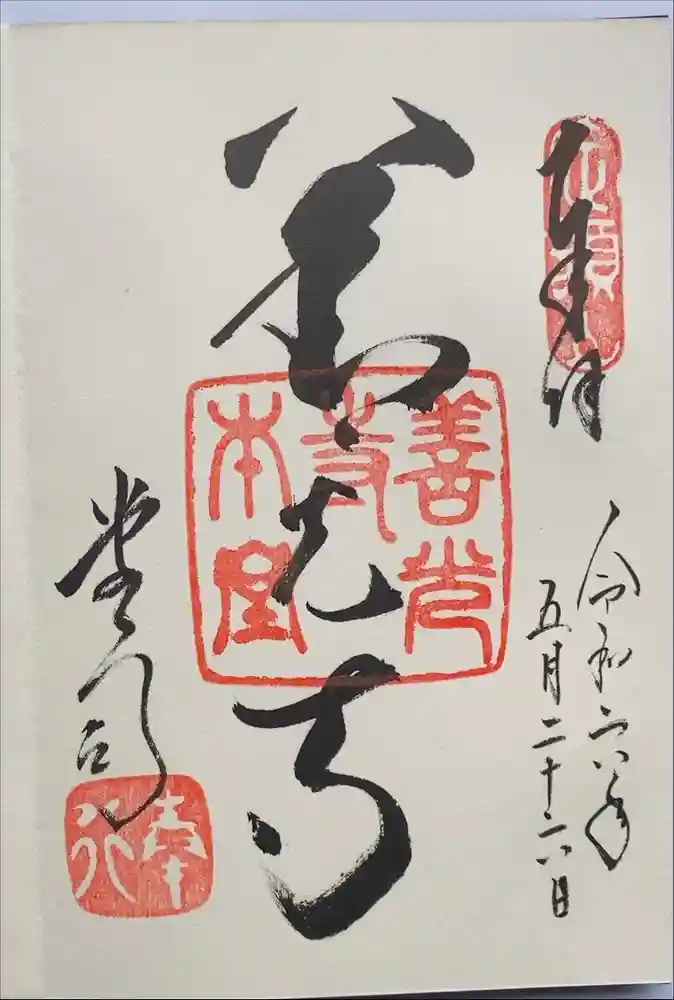 奉拝
令和六年
五月二十六日
善光寺
善光
寺
本堂
堂司
奉行